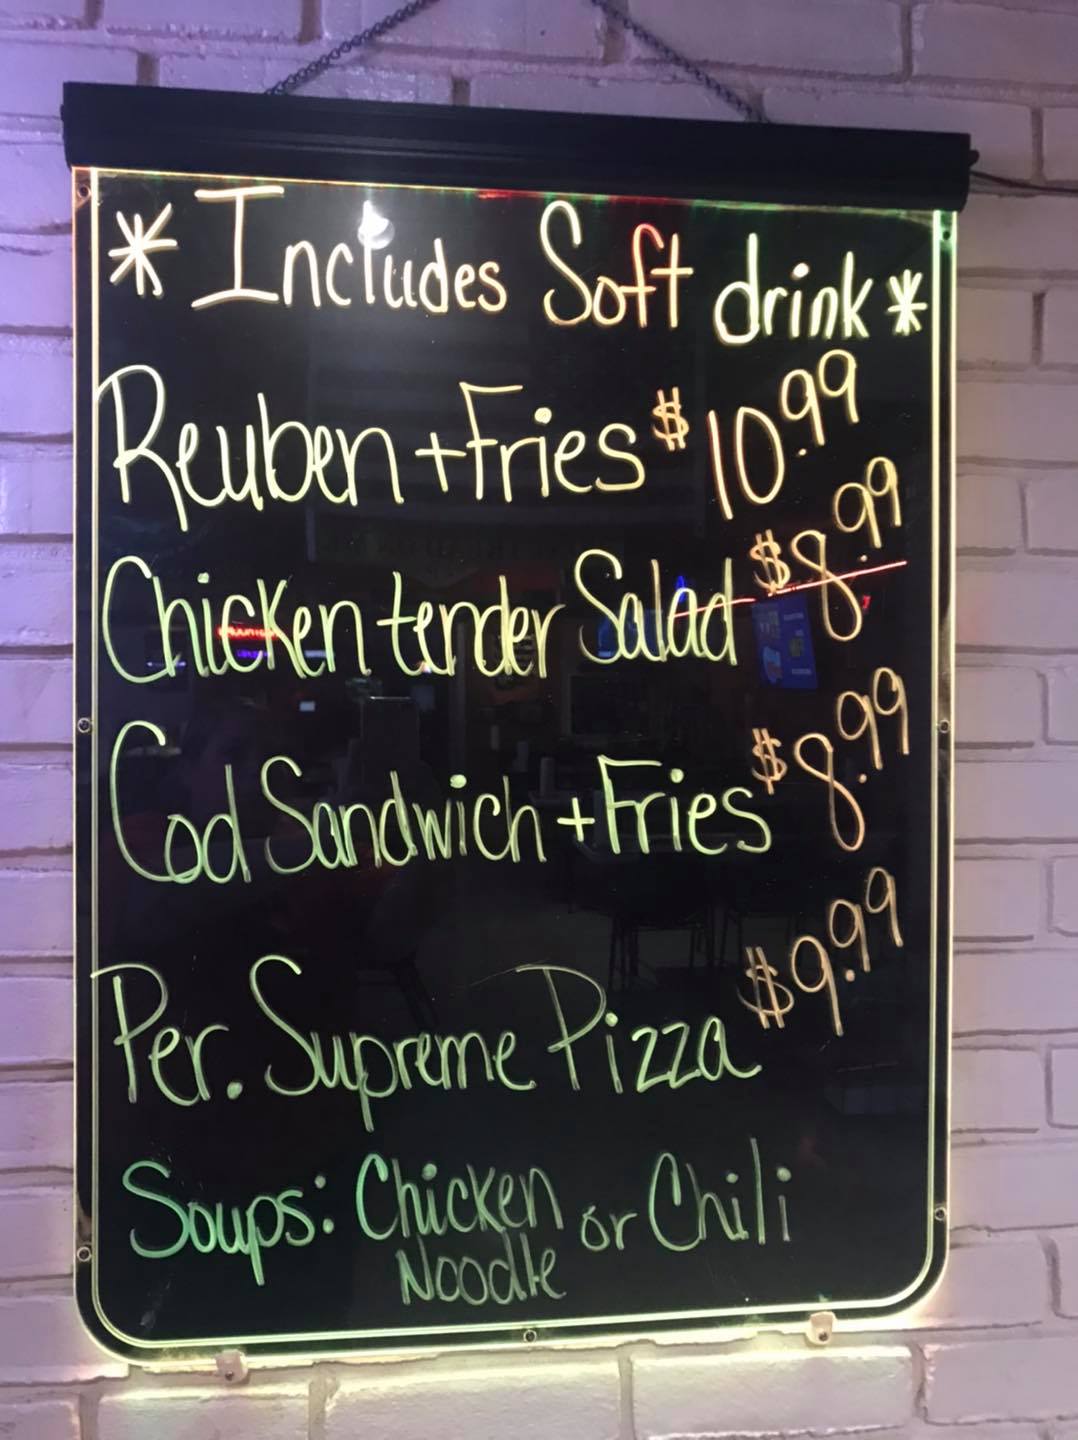 * Includes Soft drink *
Reuben + Fries $10.99
Chicken tender Salad $8.99
Cod Sandwich + Fries $8.99
Per. Supreme Pizza $9.99
Soups: Chicken or Chili
Noodle